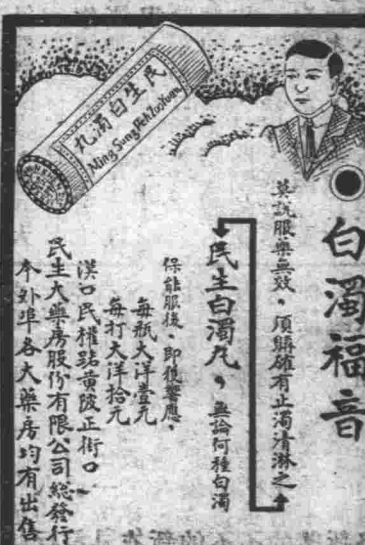 民生白濁丸
Ming Sung Peh
白濁福音
莫說服藥無效。須解確有止濁清淋之
民生白濁丸，無論何種白濁
保能服後、即獲響應、
每瓶大洋壹元
每打大洋拾元
漢口民權路黃陂正街口、
民生大藥房股份有限公司總發行
本外埠各大藥房均有出售